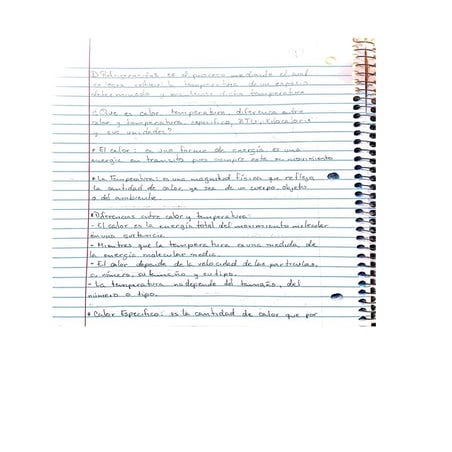 Refrigeración: es el proceso mediante el cual
se logra reducir la temperatura de un espacio
determinado y mantener dicha temperatura
¿Que es calor, temperatura, diferencia entre
calor y temperatura, especifico, BTU, Kilocaloria
y sus unidades?
• El calor: es una forma de energía, es una
energía en transito pues siempre esta en movimiento
• La Temperatura: es una magnitud física que refleja
la cantidad de calor ya sea de un cuerpo, objeto
o del ambiente.
Diferencias entre calor y temperatura:
- El calor es la energía total del movimiento molecular
en una sustancia.
- Mientras que la temperatura es una medida de
la energía molecular media.
- El calor depende de la velocidad de las particulas,
número, su tamaño y su tipo.
- La temperatura no depende del tamaño, del
número o tipo.
• Calor Especifico: es la cantidad de calor que por